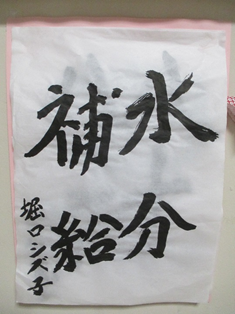 水分
補給
堀口シズ子